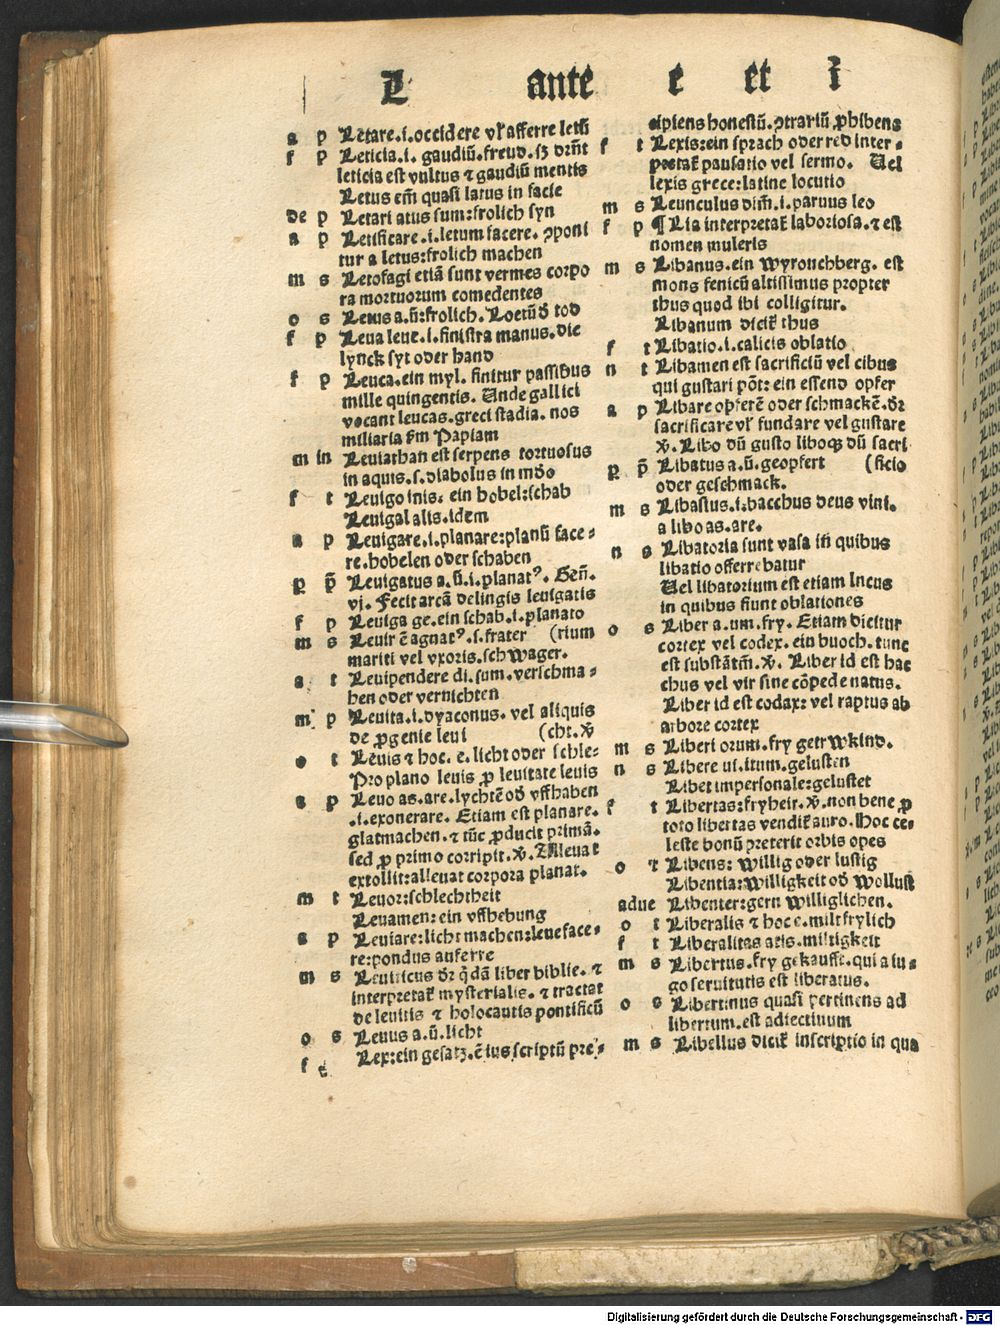 L ante e et i
a p Letare.i.occidere vl̕ afferre letū
f p Leticia.i. gaudiū.freud.sz drn̄t
leticia est vultus ⁊ gaudiū mentis
Letus em̄ quasi latus in facie
de p Letari atus sum:frolich syn
a p Letificare.i.letum facere. ꝯponi
tur a letus:frolich machen
m s Letofagi etiā sunt vermes corpo
ra mortuorum comedentes
o s Letus a.ū:frolich. Loetū đ tod
f p Leua leue.i.sinistra manus.die
lynck syt oder hand
f p Leuca.ein myl. finitur passibus
mille quingentis. Unde gallici
vocant leucas.greci stadia. nos
miliaria s̄m Papiam
m in Leuiathan est serpens tortuosus
in aquis.s.diabolus in mūdo
f t Leuigo inis: ein hobel:schab
Leuigal alis.idem
a p Leuigare.i.planare:planū face⸗
re.hobelen oder schaben
p̱ p̄ Leuigatus a.ū.i.planatꝰ. Gen̄.
vj. Fecit arcā delingis leuigatis
f p Leuiga ge.ein schab.i.planato
m s Leuir ē agnatꝰ.s.frater (rium
mariti vel vxoris.schwager.
a t Leuipendere di.sum.verschma⸗
hen oder vernichten
m p Leuita.i.dyaconus. vel aliquis
de ꝓgenie leui (cht.v̕
o t Leuis ⁊ hoc. e. licht oder schle⸗
Pro plano leuis ꝓ leuitate leuis
a p Leuo as.are.lychtē oď vffhaben
.i.exonerare. Etiam est planare.
glatmachen.⁊ tūc ꝓducit primā.
sed ꝓ primo corripit.v̕. Alleuat
extollit:alleuat corpora planat.
m t Leuor:schlechtheit
Leuamen: ein vffhebung
a p Leuiare:licht machen:leue face⸗
re:pondus auferre
m s Leuiticus dr̄ qdā liber biblie. ⁊
interpretat̕ mysterialis. ⁊ tractat
de leuitis ⁊ holocautis pontificū
o s Leuus a.ū.licht
f t Lex:ein gesatz.ē ius scriptū pre⸗
cipiens honestū.ꝯtrariū ꝓhibens
f t Lexis:ein sprach oder red inter⸗
pretat̕ pausatio vel sermo. Uel
lexis grece:latine locutio
m s Leunculus dim̄.i.paruus leo
f p ¶ Lia interpretat̕ laboriosa.⁊ est
nomen muleris
m s Libanus.ein wyrouchberg. est
mons fenicū altissimus propter
thus quod ibi colligitur.
Libanum dicit̕ thus
f t Libatio.i.calicis oblatio
n t Libamen est sacrificiū vel cibus
qui gustari pōt: ein essend opfer
a p Libare opferē oder schmackē.dr̄
sacrificare vl̕ fundare vel gustare
v̕. Libo dū gusto liboqꝫ dū sacri
p̱ p̄ Libatus a.ū.geopfert (ficio
oder geschmack.
m s Libastus.i:bacchus deus vini.
a libo as.are.
n s Libatoria sunt vasa in̄ quibus
libatio offerrebatur
Uel libatorium est etiam lucus
in quibus fiunt oblationes
o s Liber a.um.fry. Etiam dicitur
cortex vel codex. ein buoch. tunc
est substātm̄.v̕. Liber id est bac
chus vel vir sine cōpede natus.
Liber id est codax: vel raptus ab
arbore cortex
m s Liberi orum.fry getrwkind.
n s Libere ui.itum.gelusten
Libet impersonale:gelustet
f t Libertas:fryheit.v̕.non bene ꝓ
toto libertas vendit̕ auro.Hoc ce⸗
leste bonū preterit orbis opes
o t Libens: willig oder lustig
Libentia:willigkeit oď wollust
adue Libenter:gern williglichen.
o t Liberalis ⁊ hoc e.milt frylich
f t Liberalitas atis.miltigkeit
m s Libertus.fry gekaufft.qui a iu⸗
go seruitutis est liberatus.
o s Libertinus quasi pertinens ad
libertum.est adiectiuum
m s Libellus dicit̕ inscriptio in qua
Digitalisierung gefördert durch die Deutsche Forschungsgemeinschaft - DFG